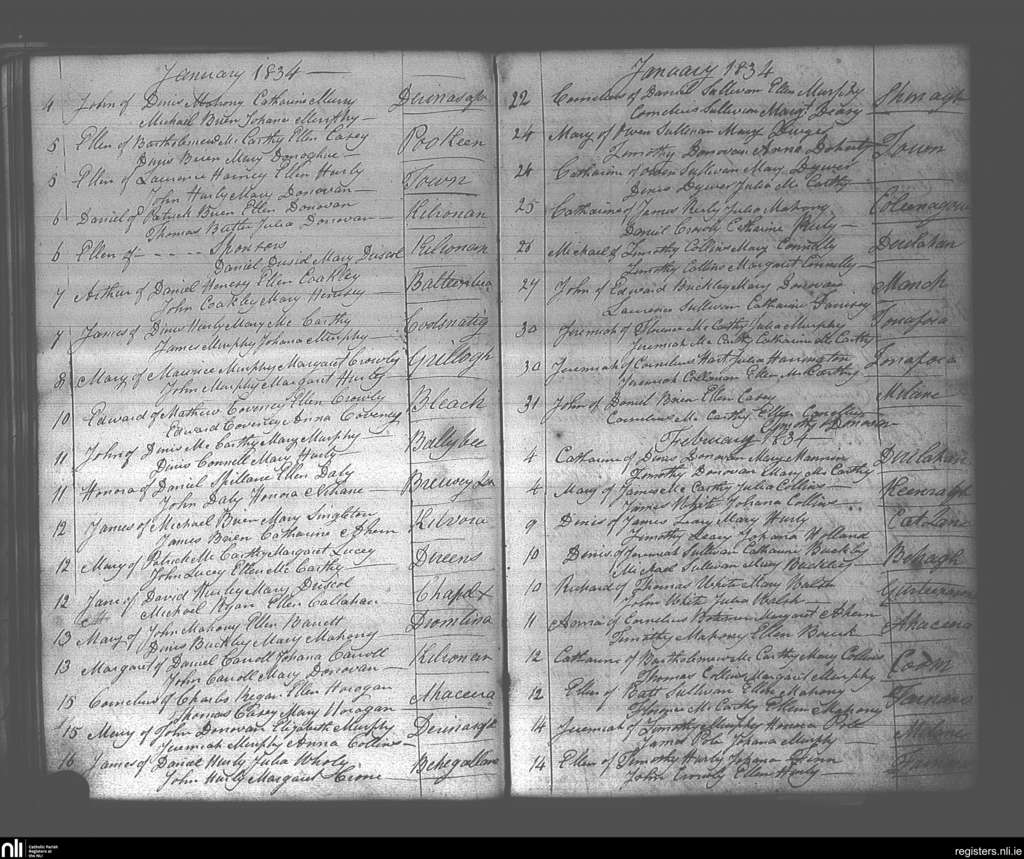 January 1834
4 John of Denis Mahony Catharine Murry
Michael Buen Johana Murphy
5 Ellen of Bartholemew Mc Carthy Ellen Casey Pookeen
Denis Buen Mary Donoghue
5 Ellen of Laurence Harvey Ellen Hurly Town
John Hurly Mary Donovan
6 Daniel of Patrick Buen Ellen Donovan Kilronan
Thomas Batter Julia Donovan
6 Ellen of - - - - Sponsors Kilronan
Daniel Dusiol Mary Dusiol
7 Arthur of Daniel Henesy Ellen Coakley
John Coakley Mary Henesey
7 James of Denis Hurly Mary Mc Carthy Coolsnatig
James Murphy Johana Murphy
8 Mary of Maurice Murphy Margaret Crowly Grillogh
John Murphy Margaret Hurly
10 Edward of Mathew Coveney Ellen Crowly Bleach
Edward Coveney Anna Coveney
11 John of Denis Mc Carthy Mary Murphy Ballybee
Denis Connell Mary Hurly
11 Honora of Daniel Spillane Ellen Daly
John Daly Honora
12 James of Michael Buen Mary Singleton
James Buen Catharine Ahern
12 Mary of Patrick Mc Carthy Margaret Lucey Dereens
John Lucey Ellen Mc Carthy
12 Jane of David Hurley Mary Driscol Chapel
Michael Ryan Ellen Callahan
13 Mary of John Mahony Ellen Barrett
Denis Buckley Mary Mahony
13 Margaret of Daniel Carroll Johana Carroll Kilronan
John Carroll Mary Donovan
15 Cornelius of Charles Regan Ellen Horogan Ahacena
Thomas Casey Mary Horogan
15 Mary of John Donovan Elizabeth Murphy
Jeremiah Murphy Anna Collins
16 James of Daniel Hurly Julia Wholy
John Hurly Margaret
January 1834
22 Cornelius of Daniel Sullivan Ellen Murphy
Cornelius Sullivan Margt
24 Mary of Owen Sullivan Mary Dwyer Town
Timothy Donovan Anna Doherty
24 Catharine of Owen Sullivan Mary Dywer
Denis Dywer Julia Mc Carthy
25 Catharine of James Hurly Julia Mahony
Daniel Crowly Catharine Hurly
26 Michael of Timothy Collins Mary Connolly
Timothy Collins Margaret Connolly
27 John of Edward Buckley Mary Donovan Manch
Laurence Sullivan Catharine
30 Jeremiah of Florence Mc Carthy Julia Murphy
Jeremiah Mc Carthy Catharine Mc Carthy
30 Jeremiah of Cornelius Hart Julia Harrington
Jeremiah Callanan Ellen Mc Carthy
31 John of Daniel Buen Ellen Casey Milane
Cornelius Mc Carthy Ellen
Timothy Donovan
February 1834
4 Catharine of Denis Donovan Mary Mannin
Timothy Donovan Mary Mc Carthy
4 Mary of James Mc Carthy Julia Collins
James White Johana Collins
9 Denis of James Leary Mary Hurly Cat Lane
Timothy Leary Johana Holland
10 Denis of Jeremiah Sullivan Catharine Buckley Behagh
Michael Sullivan Mary Buckley
10 Richard of Thomas White Mary Walsh
John White Julia Walsh
11 Anna of Cornelius Margaret Ahern Ahacena
Timothy Mahony Ellen
12 Catharine of Bartholemew Mc Carthy Mary Collins
Thomas Collins Margaret Murphy
12 Ellen of Batt Sullivan Ellen Mahony
Florence Mc Carthy Ellen Mahony
14 Jeremiah of Timothy Murphy Honora Pole
James Pole Johana Murphy
14 Ellen of Timothy Hurly Johana
John Ellen Hurly
nli
Catholic Parish
Registers at
the NLI
registers.nli.ie